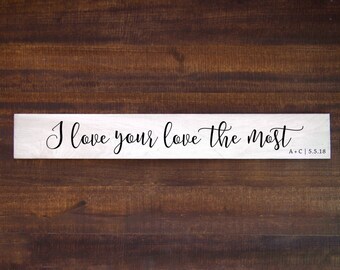 I love your love the most
A + C | 5.5.18